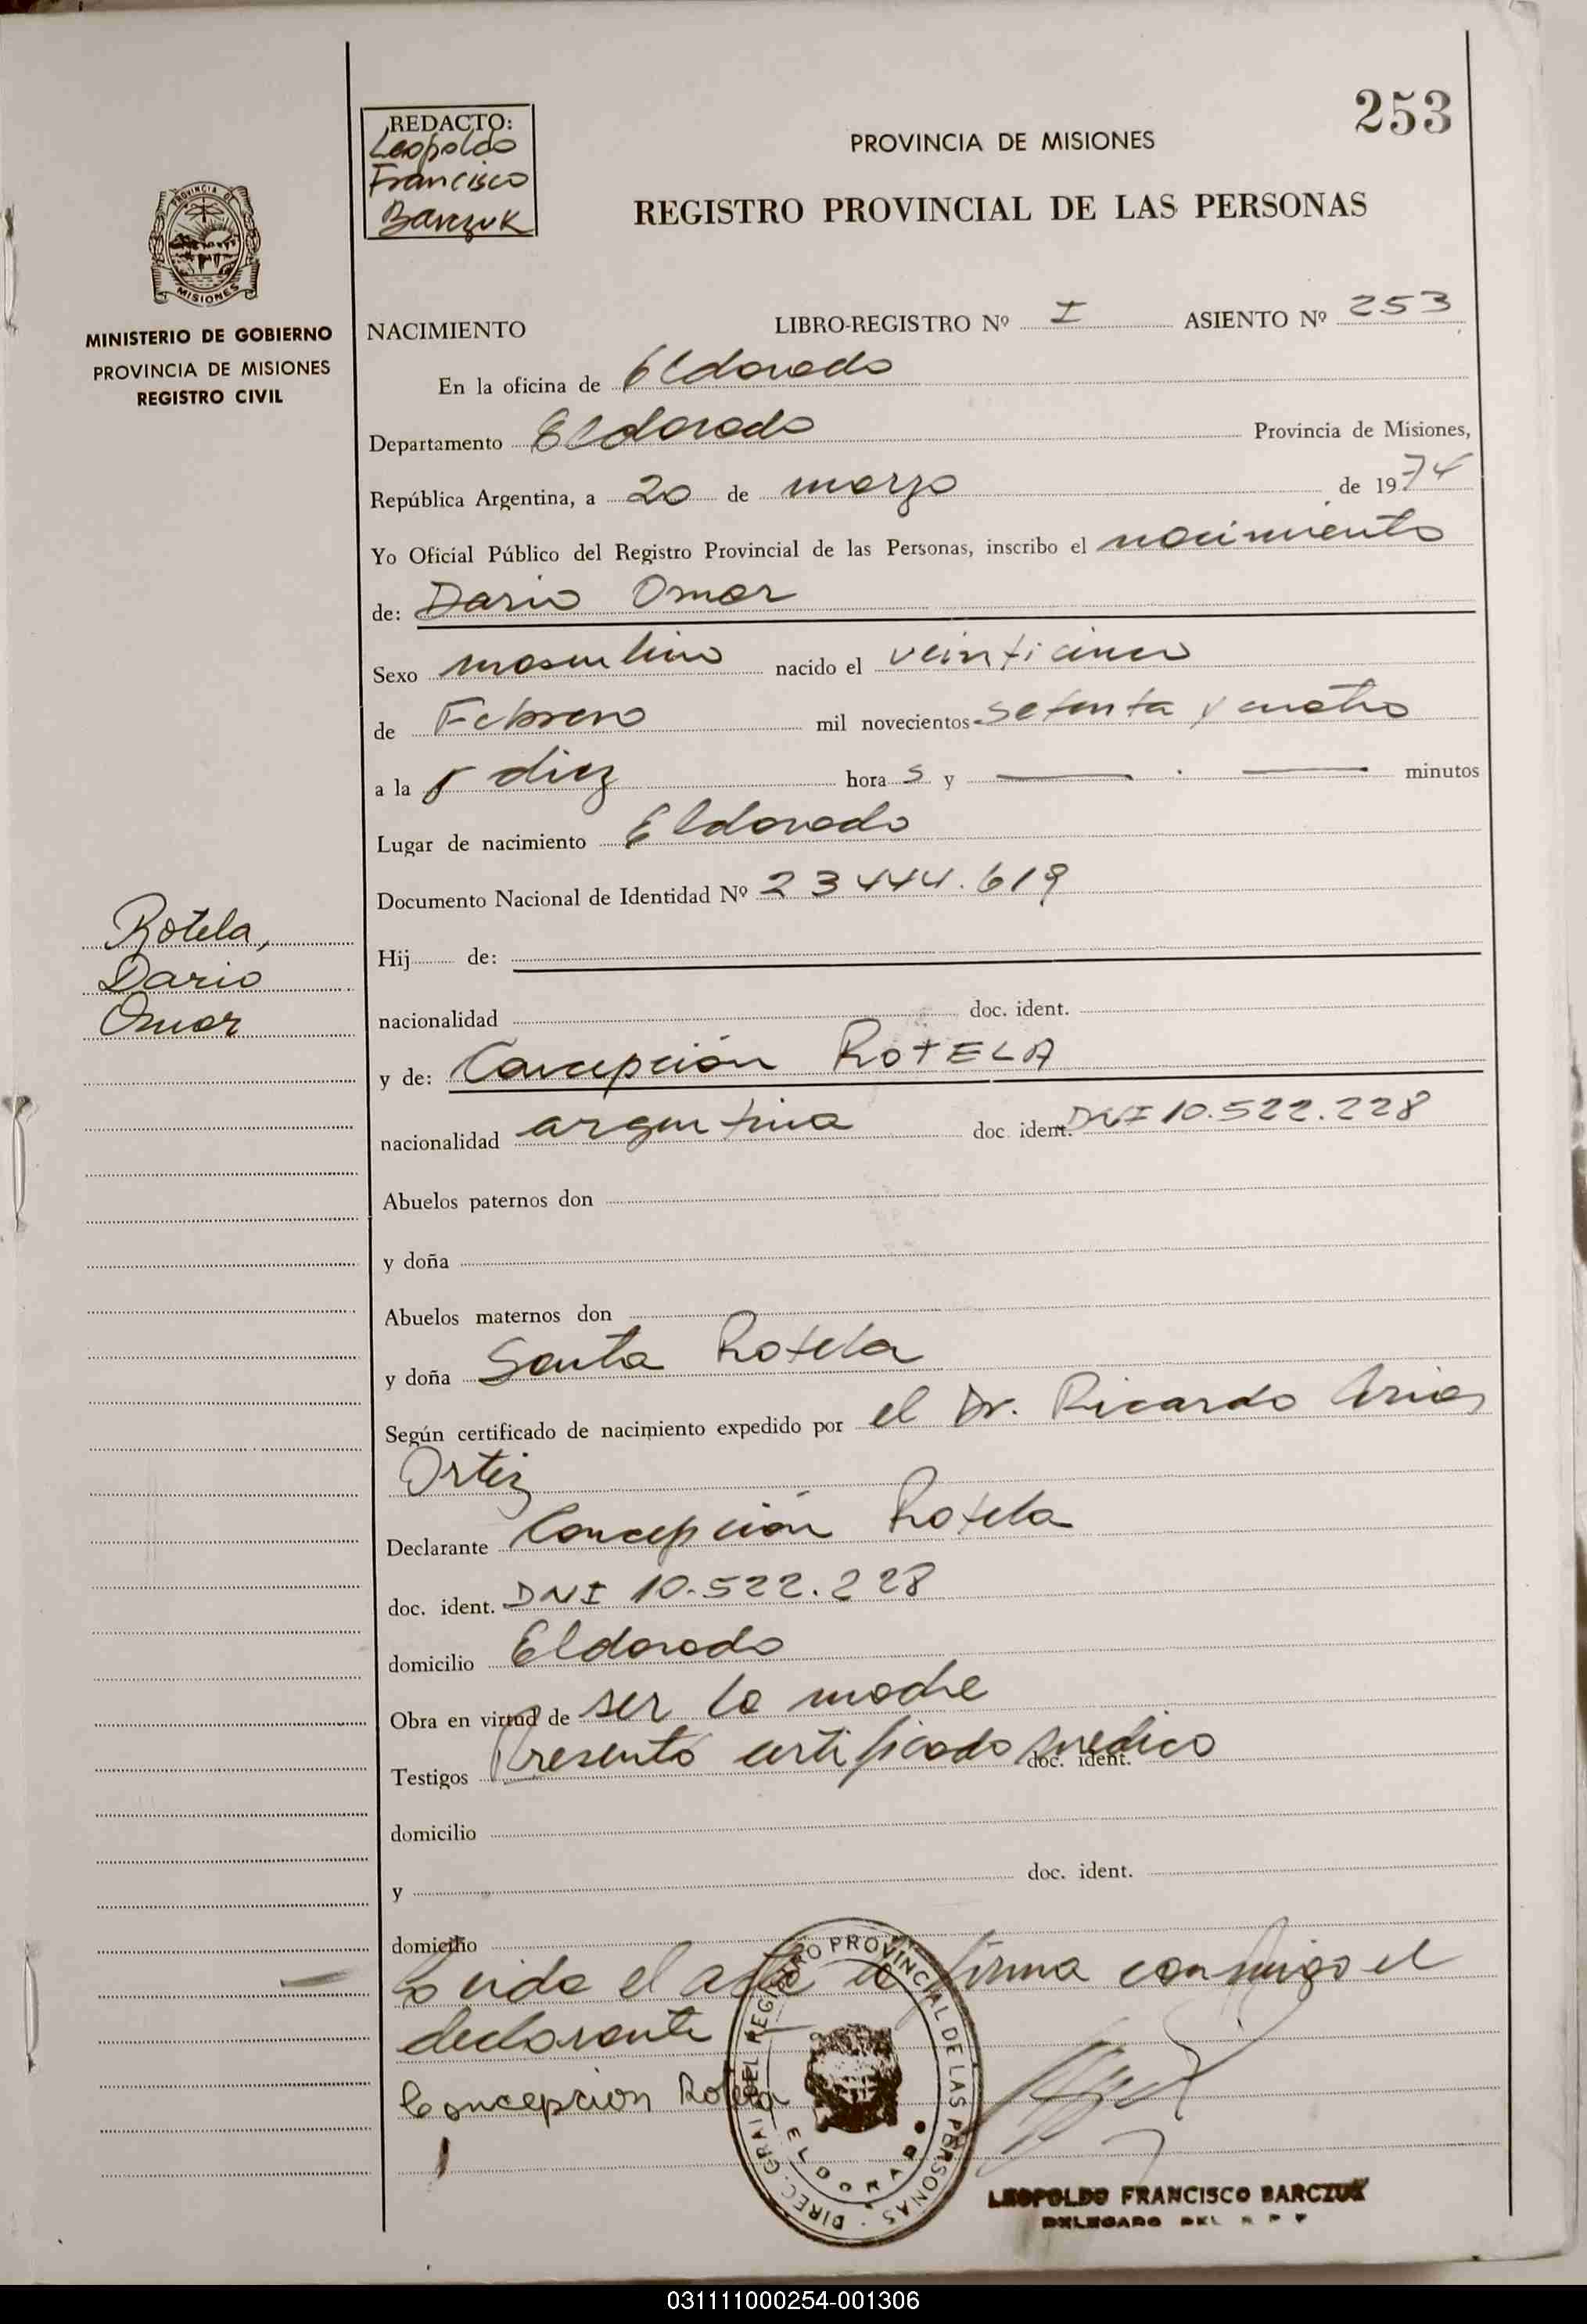 253
REDACTO:
Leopoldo
Francisco
Barczuk
PROVINCIA DE MISIONES
REGISTRO PROVINCIAL DE LAS PERSONAS
PROVINCIA DE
MISIONES
MINISTERIO DE GOBIERNO
PROVINCIA DE MISIONES
REGISTRO CIVIL
NACIMIENTO LIBRO-REGISTRO Nº I ASIENTO Nº 253
En la oficina de Eldorado
Departamento Eldorado Provincia de Misiones,
República Argentina, a 20 de marzo de 1974
Yo Oficial Público del Registro Provincial de las Personas, inscribo el nacimiento
de: Dario Omar
Sexo masculino nacido el veinticinco
de Febrero mil novecientos setenta y cuatro
a la s diez hora s y minutos
Lugar de nacimiento Eldorado
Documento Nacional de Identidad Nº 23444.619
Rotela,
Dario
Omar
Hij de:
nacionalidad doc. ident.
y de: Concepción ROTELA
nacionalidad argentina doc ident. DNI 10.522.228
Abuelos paternos don
y doña
Abuelos maternos don
y doña Santa Rotela
Según certificado de nacimiento expedido por el Dr. Ricardo Arias
Ortiz
Declarante Concepción Rotela
doc. ident. DNI 10.522.228
domicilio Eldorado
Obra en virtud de ser la madre
Testigos Presentó certificado médico doc. ident.
domicilio
y doc. ident.
domicilio
Leida el acta la firma conmigo el
declarante
Concepcion Rotela
DIREC. GRAL. DEL REGISTRO PROVINCIAL DE LAS PERSONAS
ELDORADO
LEOPOLDO FRANCISCO BARCZUK
DELEGADO DEL R P P
031111000254-001306